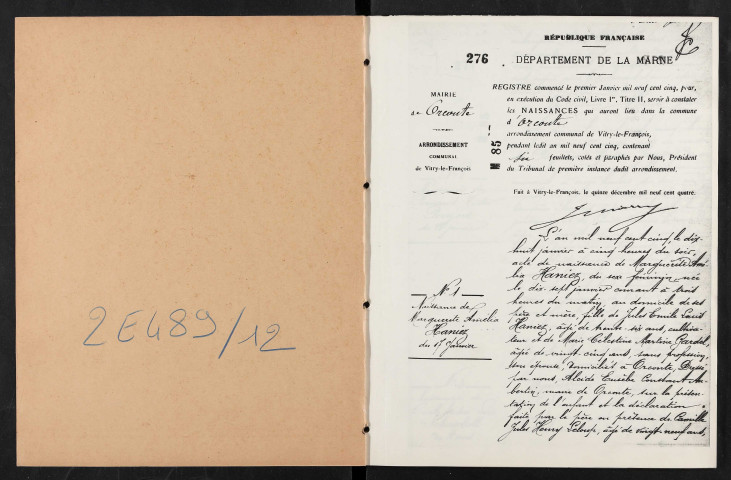 2E489/12
276
RÉPUBLIQUE FRANÇAISE
DÉPARTEMENT DE LA MARNE
MAIRIE
de Orconte
ARRONDISSEMENT
COMMUNAL
de Vitry-le-François
85
REGISTRE commencé le premier Janvier mil neuf cent cinq, pour,
en exécution du Code civil, Livre Ier, Titre II, servir à constater
les NAISSANCES qui auront lieu dans la commune
d'Orconte
arrondissement communal de Vitry-le-François,
pendant ledit an mil neuf cent cinq, contenant
six feuillets, cotés et paraphés par Nous, Président
du Tribunal de première instance dudit arrondissement.
Fait à Vitry-le-François, le quinze décembre mil neuf cent quatre.
N° 1
Naissance de
Marguerite Amélia
Haniez
du 17 Janvier
L'an mil neuf cent cinq, le dix-
huit janvier à cinq heures du soir,
acte de naissance de Marguerite Amé-
lia Haniez, du sexe féminin, née
le dix sept janvier courant à trois
heures du matin, au domicile de ses
père et mère, fille de Jules Emile
Haniez, âgé de trente-six ans, cultiva-
teur et de Marie Célestine Martine
âgée de vingt cinq ans, sans profession,
son épouse, domiciliés à Orconte, Dressé
par nous, Alcide Eusèbe Constant Au-
bertin, maire de Orconte, sur la présen-
tation de l'enfant et la déclaration
faite par le père en présence de Camille
Jules Henry Leloup, âgé de vingt-neuf ans,